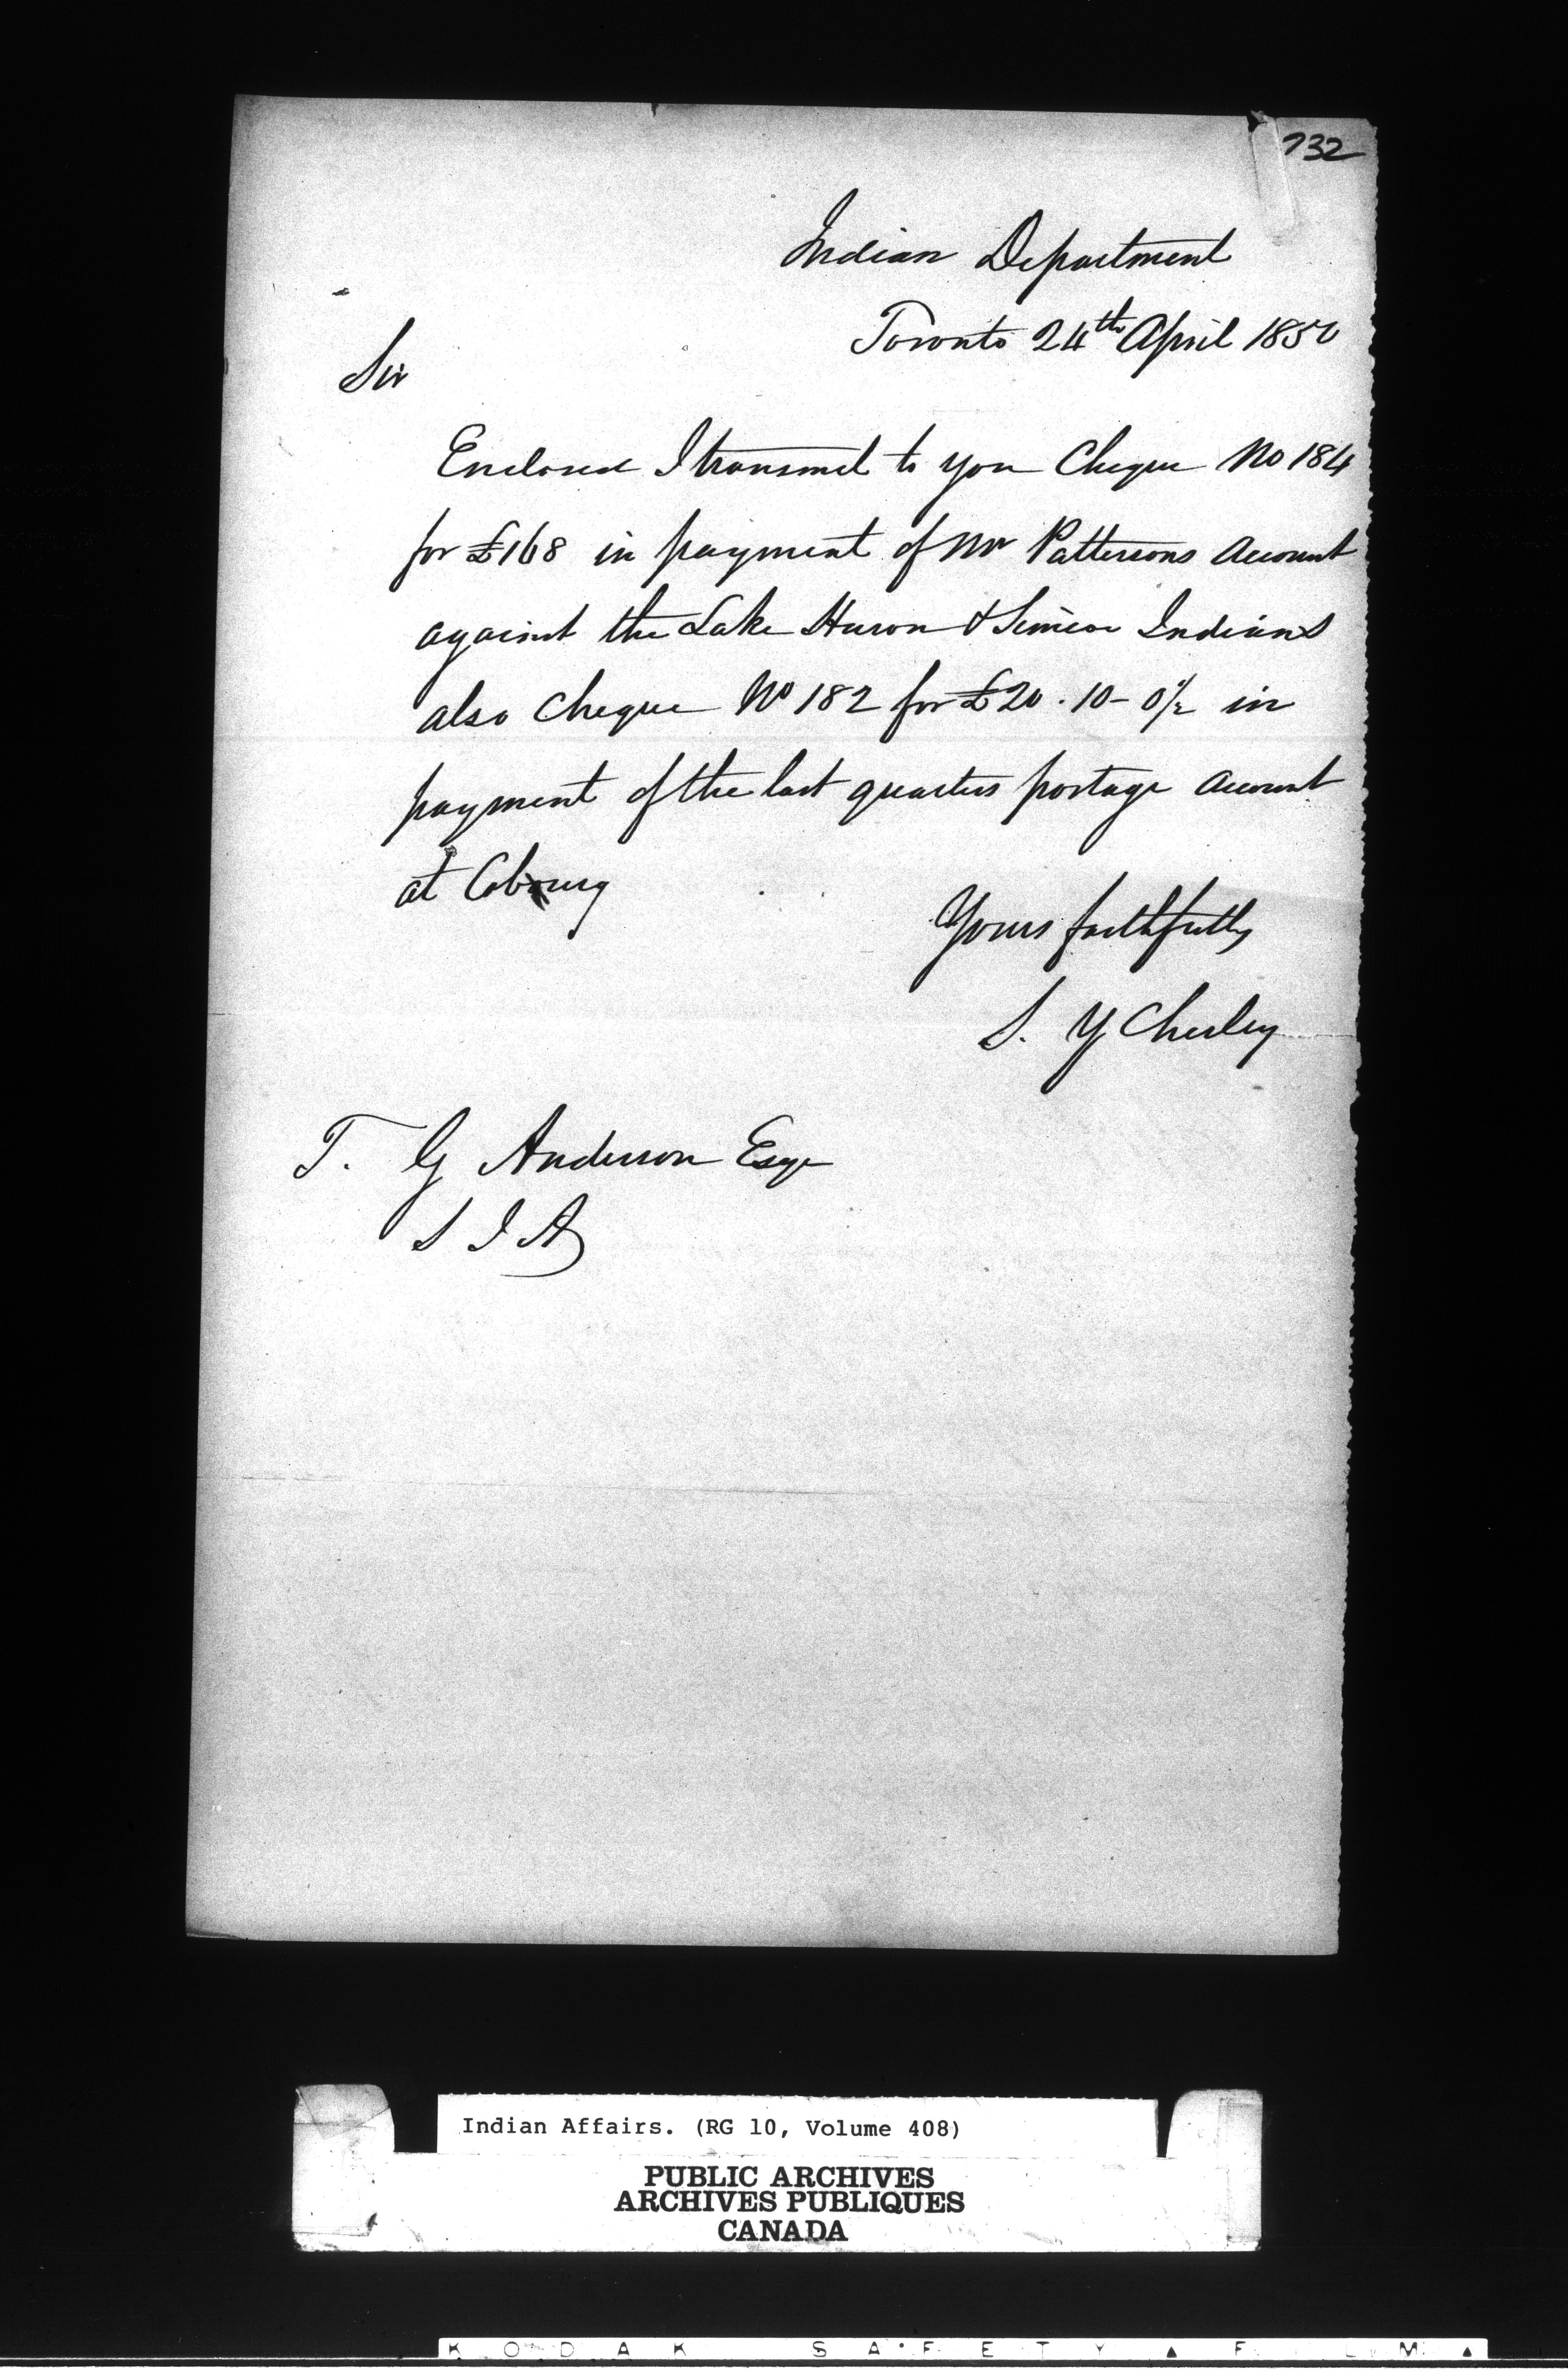 732
Indian Department
Toronto 24th April 1850
Sir
Enclosed I transmit to you Cheque No 184
for £168 in payment of Mr Pattersons Account
against the Lake Huron & Simcoe Indians
also Cheque No 182 for £20 . 10 - 0½ in
payment of the last quarters postage account
at Cobourg
Yours faithfully
S. Y Chesley
T. G Anderson Esqr
S I A
Indian Affairs. (RG 10, Volume 408)
PUBLIC ARCHIVES
ARCHIVES PUBLIQUES
CANADA
KODAK SAFETY FILM